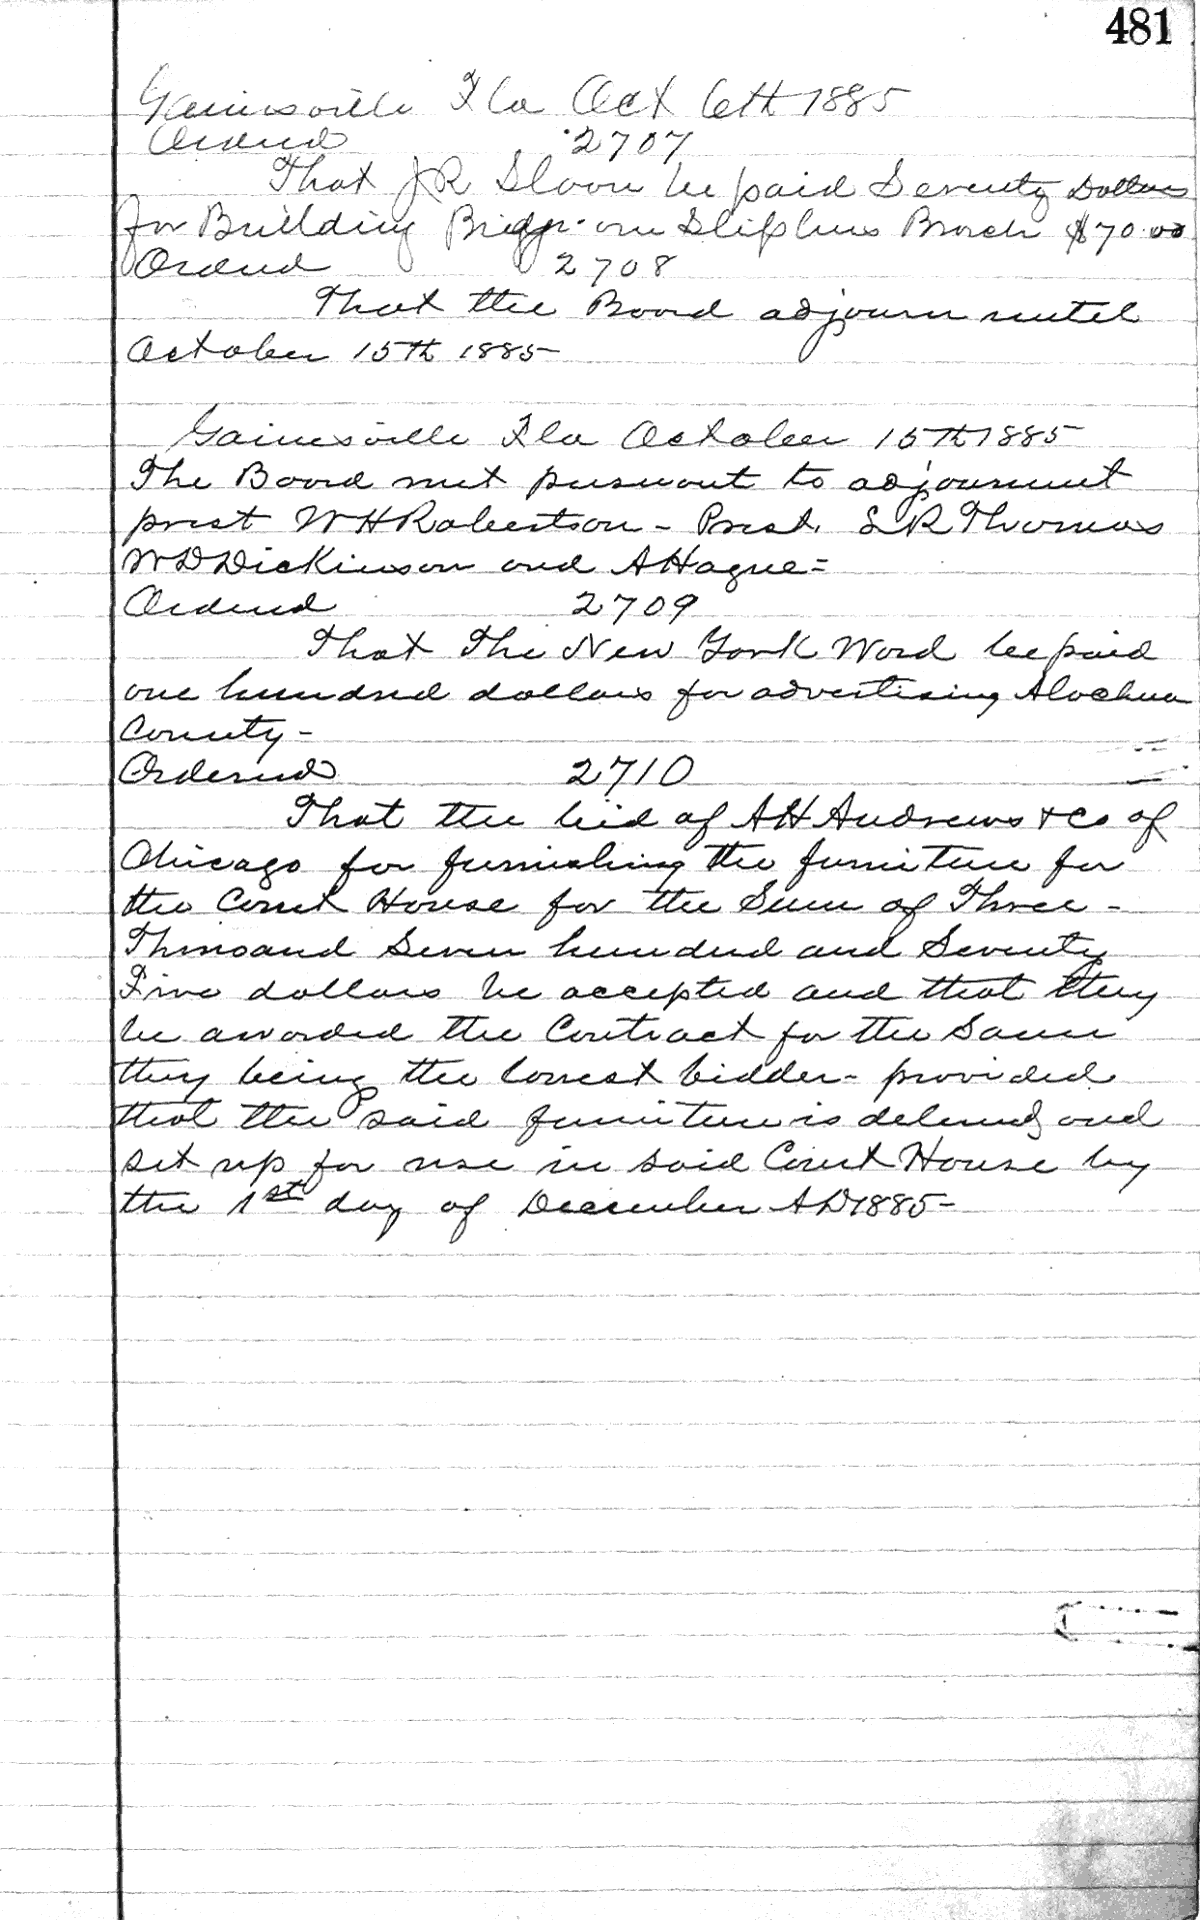 481
Gainesville Fla Oct 6th 1885
Ordered 2707
That J R Sloan be paid Seventy Dollars
for Building Bridge on Branch $70.00
Ordered 2708
That the Board adjourn until
October 15th 1885
Gainesville Fla October 15th 1885
The Board met pursuant to adjournment
prest W H Robertson - Prest. L R Thomas
W D Dickinson and A Hague =
Ordered 2709
That the New York Word be paid
one hundred dollars for advertising Alachua
County -
Ordered 2710
That the bid of A H Andrews & Co of
Chicago for furnishing the furniture for
the Court House for the Sum of Three -
Thousand Seven hundred and Seventy
Five dollars be accepted and that they
be awarded the Contract for the Same
they being the lowest bidder - provided
that the said furniture is delivered and
set up for use in said Court House by
the 1st day of December A D 1885 -